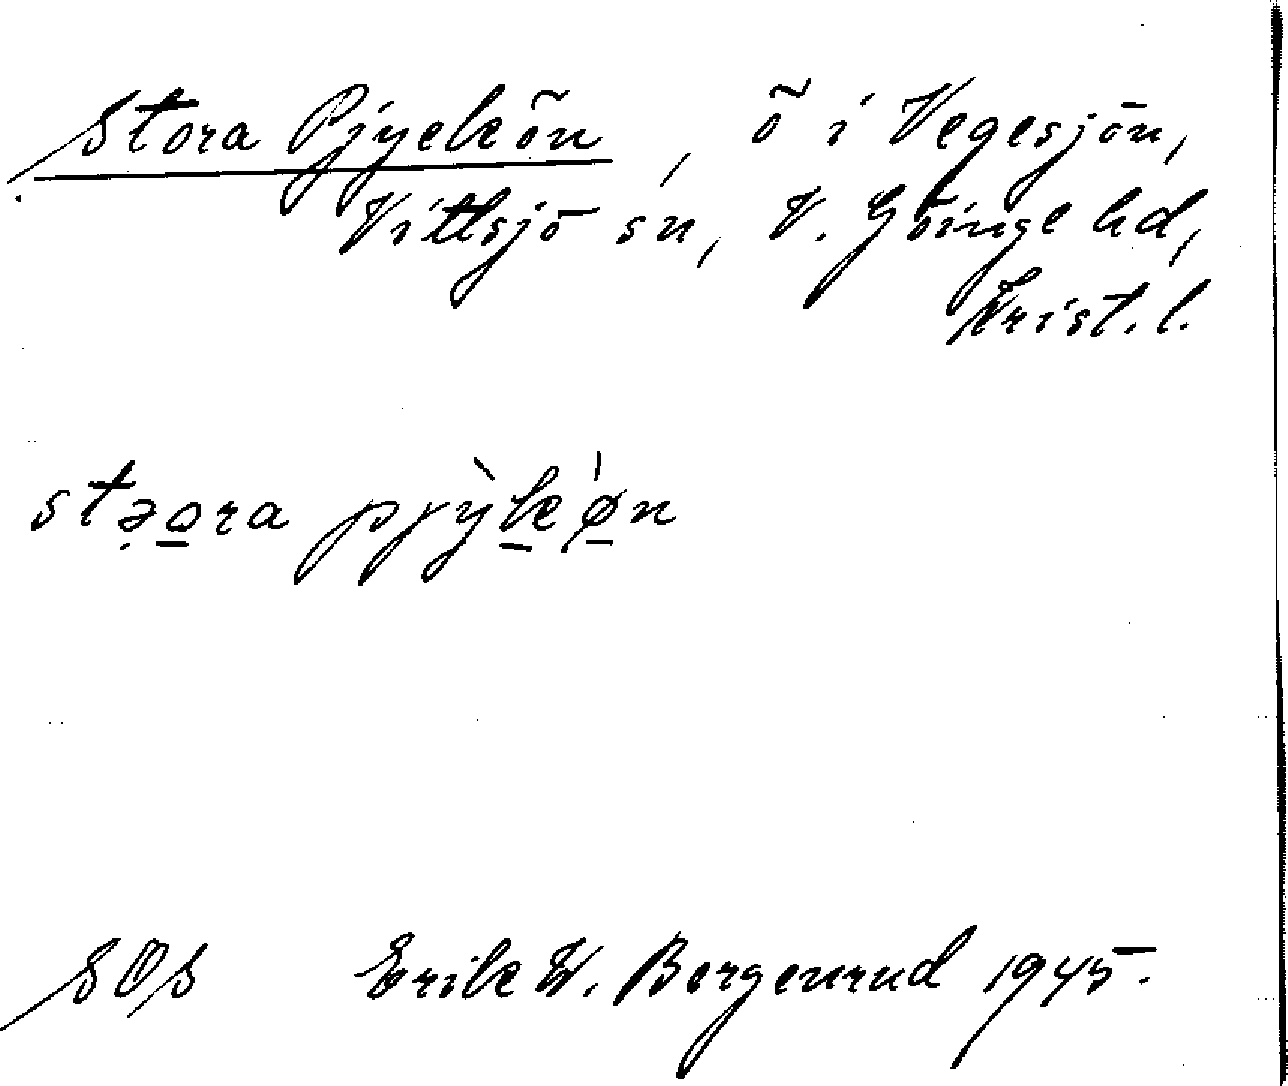 Stora Pjyekön, ö i Vegesjön,
Vittsjö sn, V. Göinge hd,
Krist. l.
stəora pjỳk'øn
SOS Erik W. Bergenrud 1945.